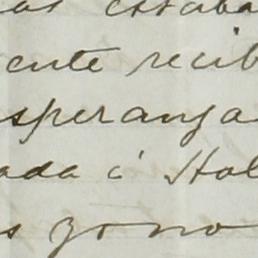 as estaba
ente recib
speranza
ada á Hol
s zono